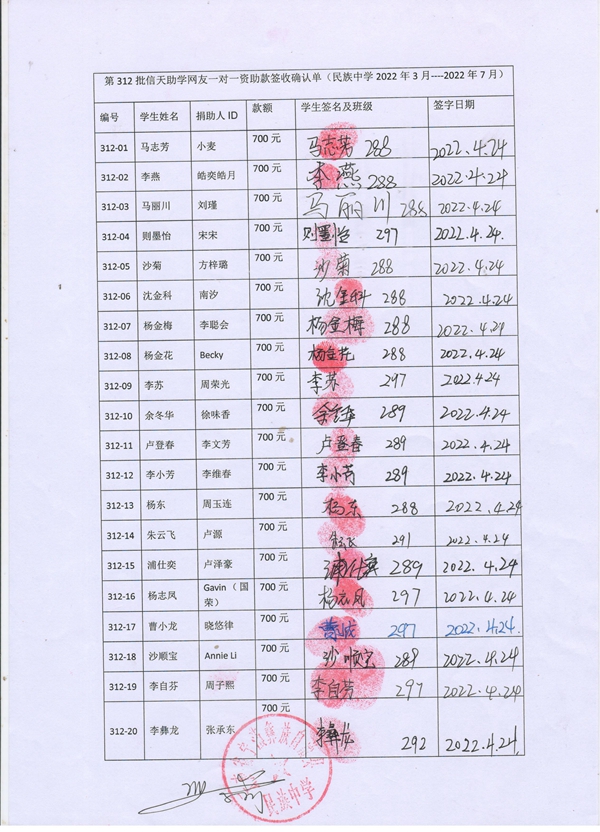 第 312 批信天助学网友一对一资助款签收确认单（民族中学 2022 年 3 月----2022 年 7 月）
编号 学生姓名 捐助人 ID 款额 学生签名及班级 签字日期
312-01 马志芳 小麦 700 元 马志芳 288 2022.4.24
312-02 李燕 皓奕皓月 700 元 李燕 288 2022.4.24
312-03 马丽川 刘瑾 700 元 马丽川 288 2022.4.24
312-04 则墨怡 宋宋 700 元 则墨怡 297 2022.4.24
312-05 沙菊 方梓璐 700 元 沙菊 288 2022.4.24
312-06 沈金科 南汐 700 元 沈金科 288 2022.4.24
312-07 杨金梅 李聪会 700 元 杨金梅 288 2022.4.24
312-08 杨金花 Becky 700 元 杨金花 288 2022.4.24
312-09 李苏 周荣光 700 元 李苏 297 2022.4.24
312-10 余冬华 徐味香 700 元 余冬华 289 2022.4.24
312-11 卢登春 李文芳 700 元 卢登春 289 2022.4.24
312-12 李小芳 李维春 700 元 李小芳 289 2022.4.24
312-13 杨东 周玉连 700 元 杨东 288 2022.4.24
312-14 朱云飞 卢源 700 元 朱云飞 291 2022.4.24
312-15 浦仕奕 卢泽豪 700 元 浦仕奕 289 2022.4.24
312-16 杨志凤 Gavin（国荣） 700 元 杨志凤 297 2022.4.24
312-17 曹小龙 晓悠律 700 元 297 2022.4.24.
312-18 沙顺宝 Annie Li 700 元 沙顺宝 289 2022.4.24
312-19 李自芬 周子熙 700 元 李自芬 297 2022.4.24
312-20 李彝龙 张承东 700 元 李彝龙 292 2022.4.24.
民族中学